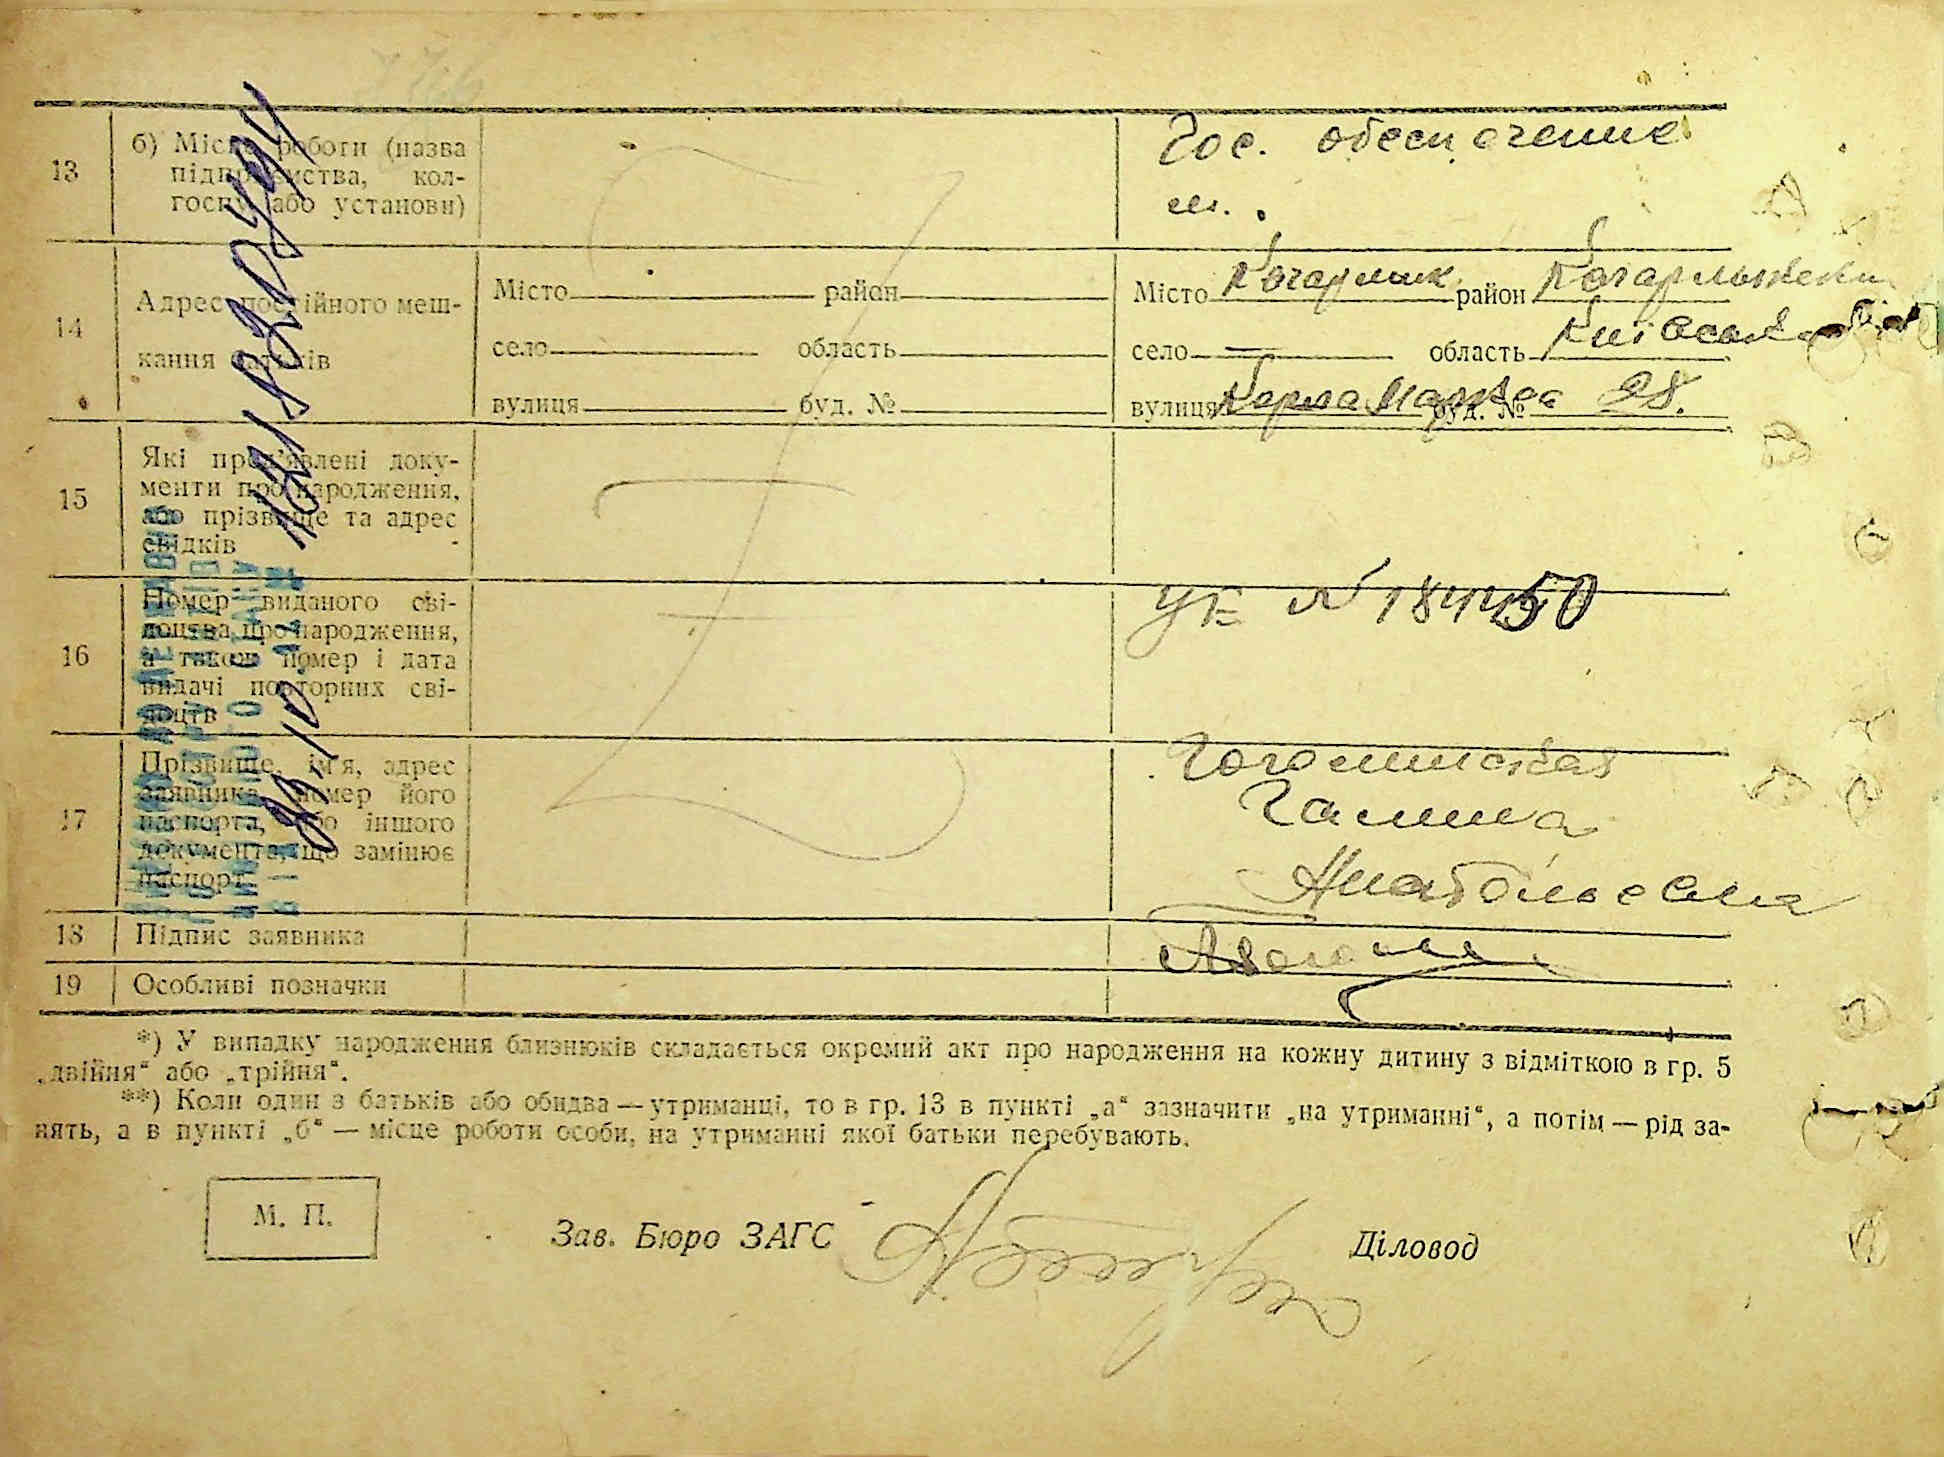 13
б) Місце роботи (назва
підприємства, кол-
госпу або установи)
Гос. обеспечение
14
Адрес постійного меш-
кання батьків
Місто район
село область
вулиця буд. №
Місто Кагарлик район Кагарлыкски
село — область Київська
вулиця Карла Маркса буд. № 28.
15
Які пред'явлені доку-
менти про народження,
або прізвище та адрес
свідків
16
Номер виданого сві-
доцтва про народження,
а також номер і дата
видачі повторних сві-
доцтв
УБ № 184450
17
Прізвище, ім'я, адрес
заявника, номер його
паспорта, або іншого
документа, що замінює
паспорт
Галина
Анатольевна
18
Підпис заявника
19
Особливі позначки
*) У випадку народження близнюків складається окремий акт про народження на кожну дитину з відміткою в гр. 5
„двійня“ або „трійня“.
**) Коли один з батьків або обидва — утриманці, то в гр. 13 в пункті „а“ зазначити „на утриманні“, а потім — рід за-
нять, а в пункті „б“ — місце роботи особи, на утриманні якої батьки перебувають.
М. П.
Зав. Бюро ЗАГС
Діловод